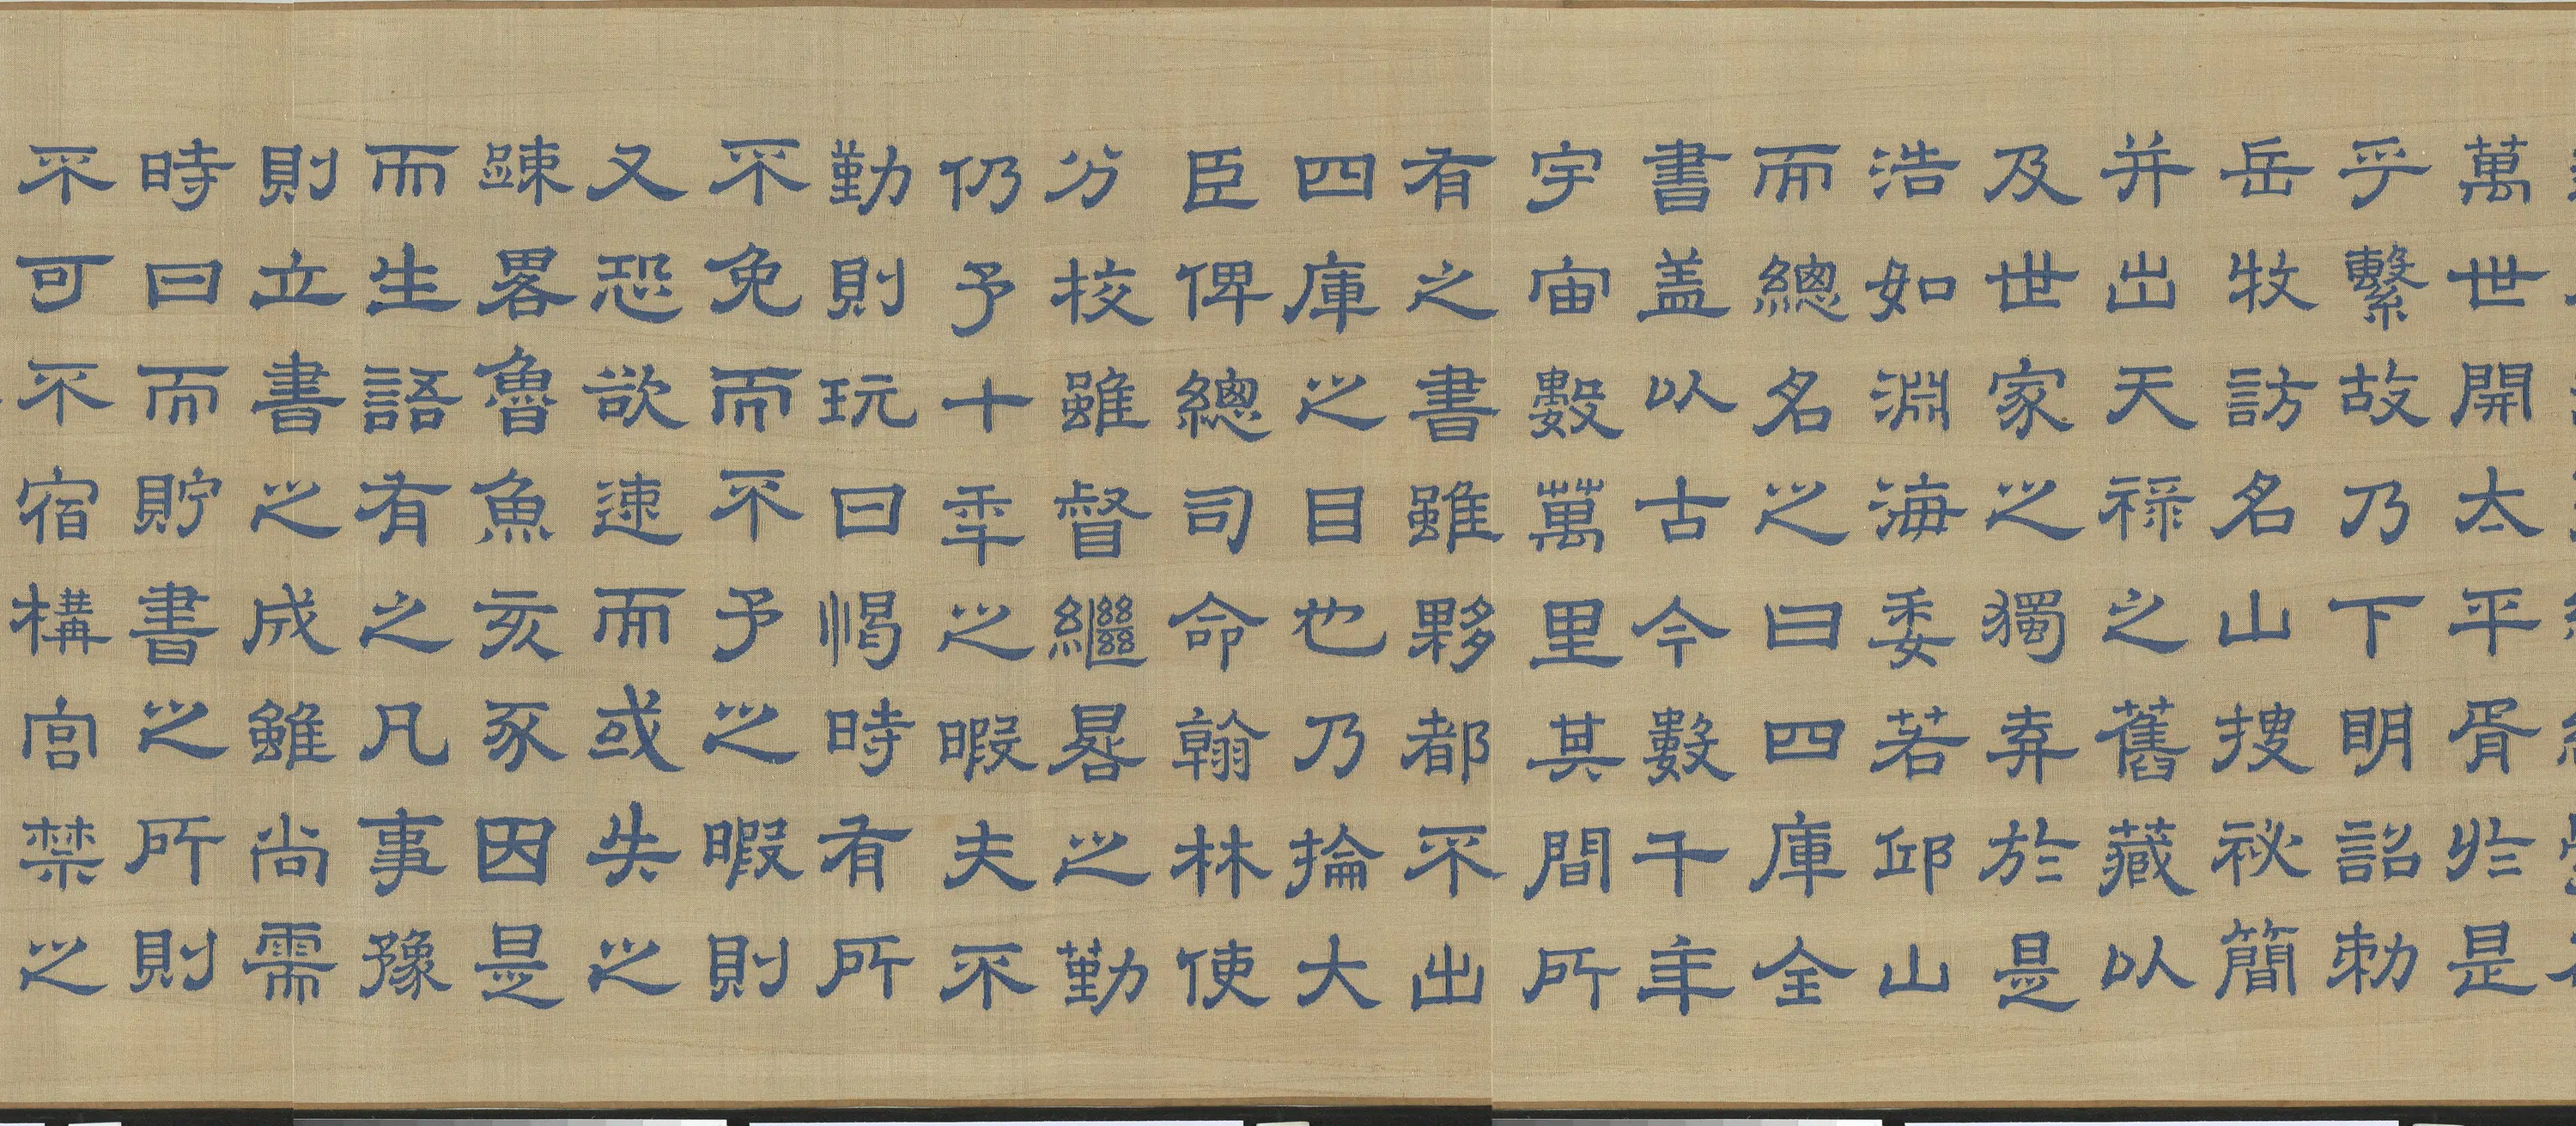 萬世開太平胥於是
乎繫故乃下明詔勅
岳牧訪名山搜祕簡
并出天祿之舊藏以
及世家之獨弆於是
浩如淵海委若邱山
而總名之曰四庫全
書盖以古今數千年
宇宙數萬里其間所
有之書雖夥都不出
四庫之目也乃掄大
臣俾總司命翰林使
分校雖督繼晷之勤
仍予十年之暇夫不
勤則玩日愒時有所
不免而不予之暇則
又恐欲速而或失之
踈畧魯魚亥豕因是
而生語有之凡事豫
則立書之成雖尚需
時日而貯書之所則
不可不宿構宮禁之